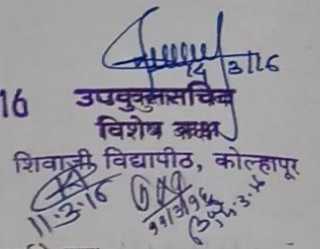 14/3/16
16 उपकुलसचिव
विशेष कक्ष
शिवाजी विद्यापीठ, कोल्हापूर
11-3-16
११/३/१६